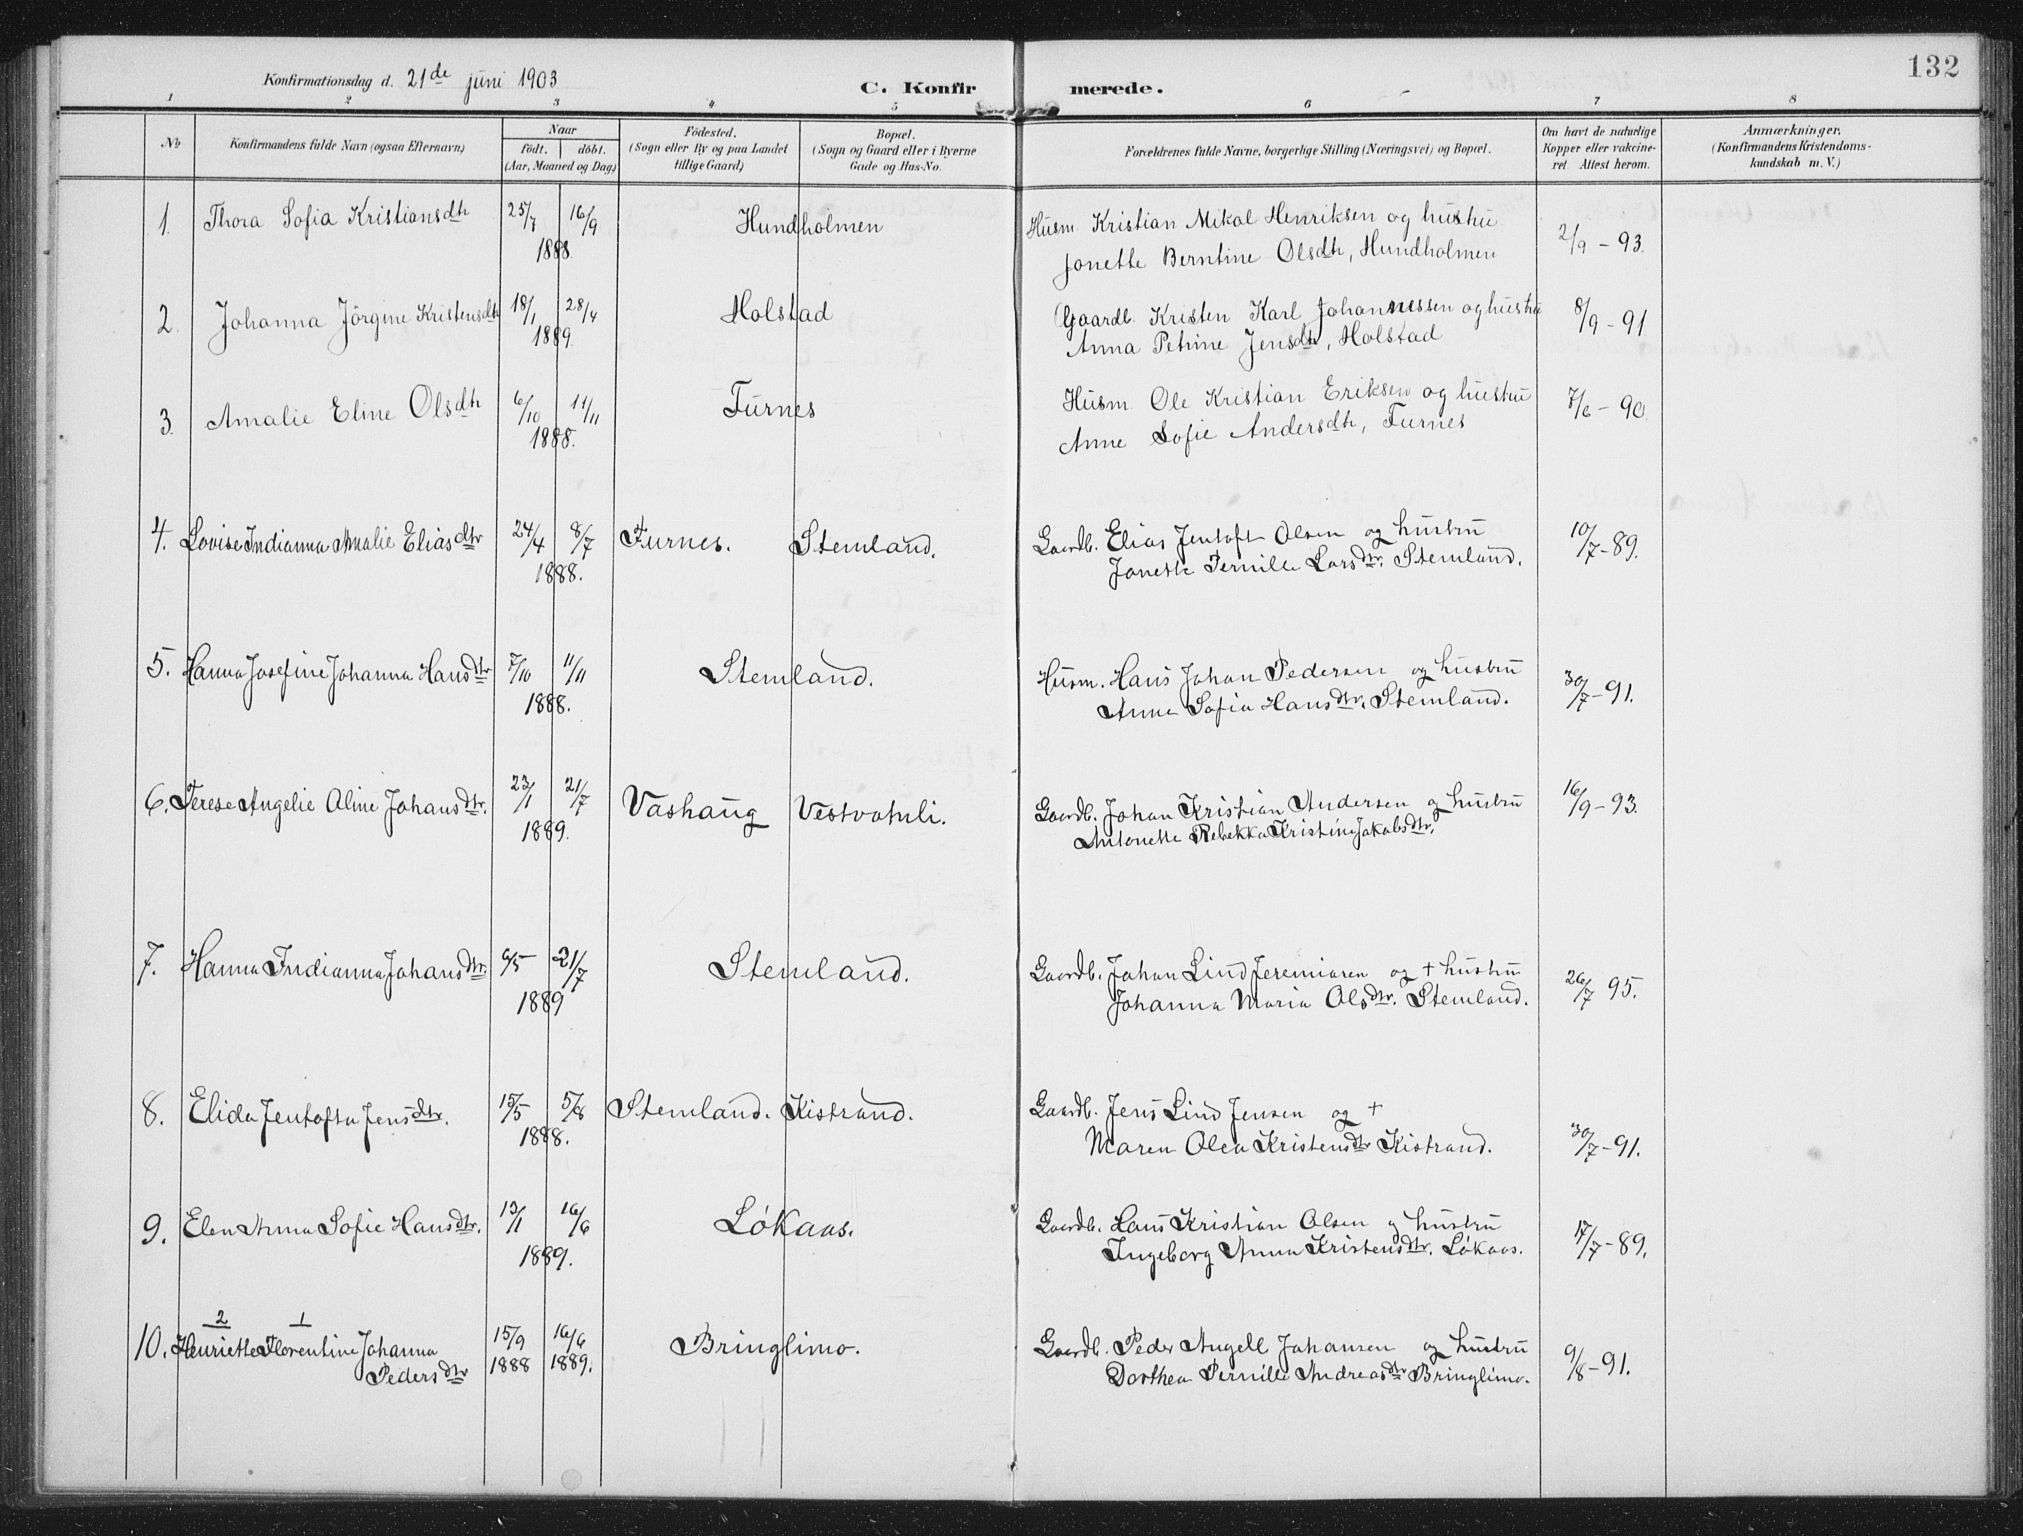 132
Konfirmationsdag d. 21de juni 1903
C. Konfir merede.
1 2 3 4 5 6 7 8
No
Konfirmandens fulde Navn (ogsaa Efternavn)
Naar
födt. döbt.
(Aar, Maaned og Dag)
Födested.
(Sogn eller By og paa Landet
tillige Gaard)
Bopæl.
(Sogn og Gaard eller i Byerne
Gade og Hus-No.
Forældrenes fulde Navne, borgerlige Stilling (Næringsvei) og Bopæl.
Om havt de naturlige
Kopper eller vakcine-
ret Attest herom.
Anmærkninger.
(Konfirmandens Kristendoms-
kundskab m. V.)
1. Thora Sofia Kristiansdtr 25/7 16/9 Hundholmen Husm. Kristian Mikal Henriksen og hustru 2/9 - 93.
1888 Jonette Berntine Olsdtr, Hundholmen
2. Johanna Jörgine Kristensdtr 18/1 28/4 Holstad Gaardb. Kristen Karl Johannessen og hustru 8/9 - 91
1889. Anna Petrine Jensdtr, Holstad
3. Amalie Eline Olsdtr 6/10 11/11 Furnes Husm. Ole Kristian Eriksen og hustru 7/6 - 90
1888. Anne Sofie Andersdtr, Furnes
4. Lovise Indianna Amalie Eliasdtr 24/4 8/7 Furnes. Stemland. Gaardb. Elias Jentoft Olsen og hustru 10/7 - 89.
1888. Jonette Pernille Larsdtr. Stemland.
5. Hanna Josefine Johanna Hansdtr 7/10 11/11 Stemland. Husm. Hans Johan Pedersen og hustru 30/7 - 91.
1888. Anne Sofia Hansdtr. Stemland.
6. Terese Angelie Aline Johansdtr. 23/1 21/7 Vashaug Vestvatnli. Gaardb. Johan Kristian Andersen og hustru 16/9 - 93.
1889. Antonette Rebekka Kristine Jakobsdtr.
7. Hanna Indianna Johansdtr. 6/5 21/7 Stemland. Gaardb. Johan Lind Jeremiasen og + hustru 26/7 95.
1889 Johanna Maria Olsdtr. Stemland.
8. Elida Jentofta Jensdtr. 15/5 5/8 Stemland. Kistrand. Gaardb. Jens Lind Jensen og +
1888. Maren Olea Kristensdtr Kistrand. 30/7 - 91.
9. Elen Anna Sofie Hansdtr. 13/1 16/6 Løkaas. Gaardb. Hans Kristian Olsen og hustru 17/7 - 89.
1889. Ingeborg Anna Kristensdtr. Løkaas.
2 1
10. Henriette Florentine Johanna 15/9 16/6 Bringlimo. Gaardb. Peder Angell Johansen og hustru 9/8 - 91.
Pedersdtr 1888 1889. Dorthea Pernille Andreasdtr Bringlimo.